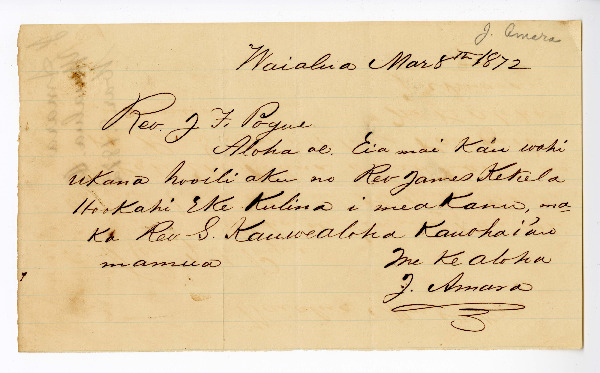 J. Amara
Waialua Mar 8th 1872
Rev. J F. Pogue
Aloha oe. Eia mai ka'u wahi
ukana hooili aku no Rev James Kekela
Hookahi Eke Kulina i mea kanu, ma
ka Rev S. Kauwealoha kauoha i'au
mamua
Me ke aloha
J. Amara